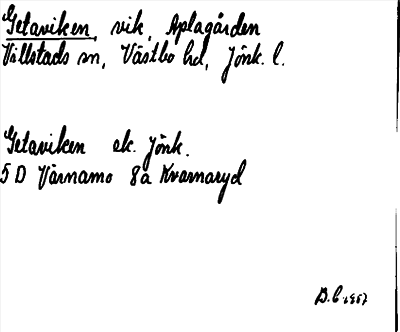 Getaviken, vik, Aplagården
Villstads sn, Västbo hd, Jönk. l.
Getaviken ek. Jönk.
5 D Värnamo 8a Kvarnaryd
B.C 1967